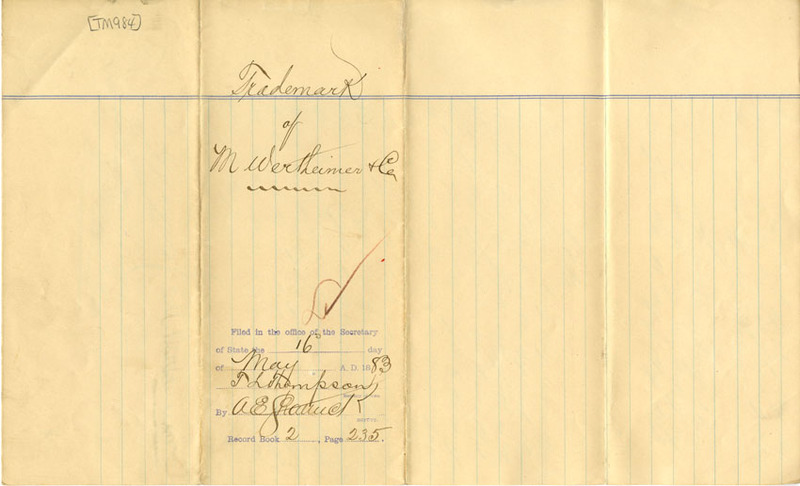 [TM984]
Trademark
of
M Wertheimer & Co
Filed in the office of the Secretary
of State the 16 day
of May A.D. 1883
T L Thompson
By A E Shattuck
Record Book 2, Page 235.